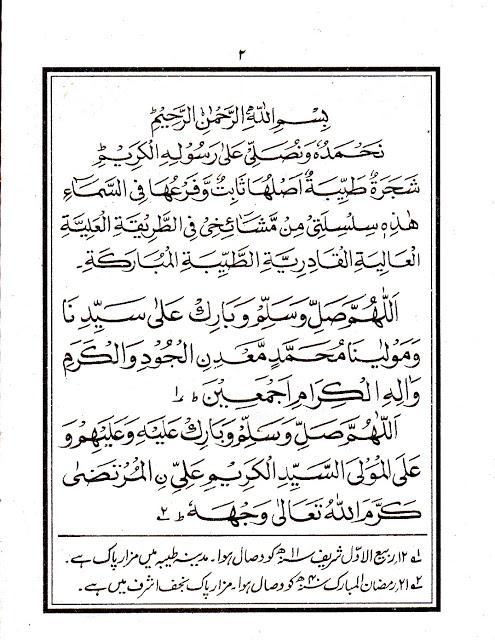 ۲
بِسْمِ اللّٰهِ الرَّحْمٰنِ الرَّحِيْمِ
نَحْمَدُهٗ وَنُصَلِّيْ عَلٰى رَسُوْلِهِ الْكَرِيْمِ
شَجَرَةٌ طَيِّبَةٌ اَصْلُهَا ثَابِتٌ وَّفَرْعُهَا فِى السَّمَاءِ
هٰذِهٖ سِلْسِلَتِيْ مِنْ مَّشَائِخِيْ فِى الطَّرِيْقَةِ الْعَلِيَّةِ
الْعَالِيَةِ الْقَادِرِيَّةِ الطَّيِّبَةِ الْمُبَارَكَةِ۔
اَللّٰهُمَّ صَلِّ وَسَلِّمْ وَبَارِكْ عَلٰى سَيِّدِنَا
وَمَوْلٰينَا مُحَمَّدٍ مَّعْدِنِ الْجُوْدِ وَالْكَرَمِ
وَاٰلِهِ الْكِرَامِ اَجْمَعِيْنَ ؕ ۱
اَللّٰهُمَّ صَلِّ وَسَلِّمْ وَبَارِكْ عَلَيْهِ وَعَلَيْهِمْ وَ
عَلَى الْمَوْلَى السَّيِّدِ الْكَرِيْمِ عَلِيِّ نِ الْمُرْتَضٰى
كَرَّمَ اللّٰهُ تَعَالٰى وَجْهَهٗ ؕ ۲
۱ ۱۲؍ ربیع الاوّل شریف ۱۱ھ کو وصال ہوا۔ مدینہ طیبہ میں مزار پاک ہے۔
۲ ۲۱؍ رمضان المبارک ۴۰ھ کو وصال ہوا۔ مزار پاک نجف اشرف میں ہے۔